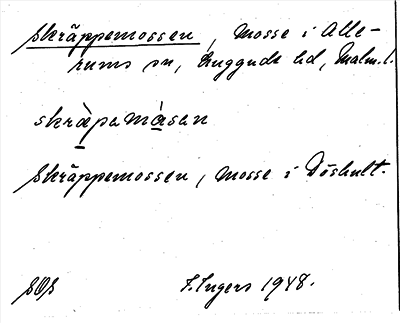 Skräppemossen, mosse i Alle-
rums sn, Luggude hd, Malm. l.
skràpamåsen
Skräppemossen, mosse i Döshult.
SOS I. Ingers 1948.